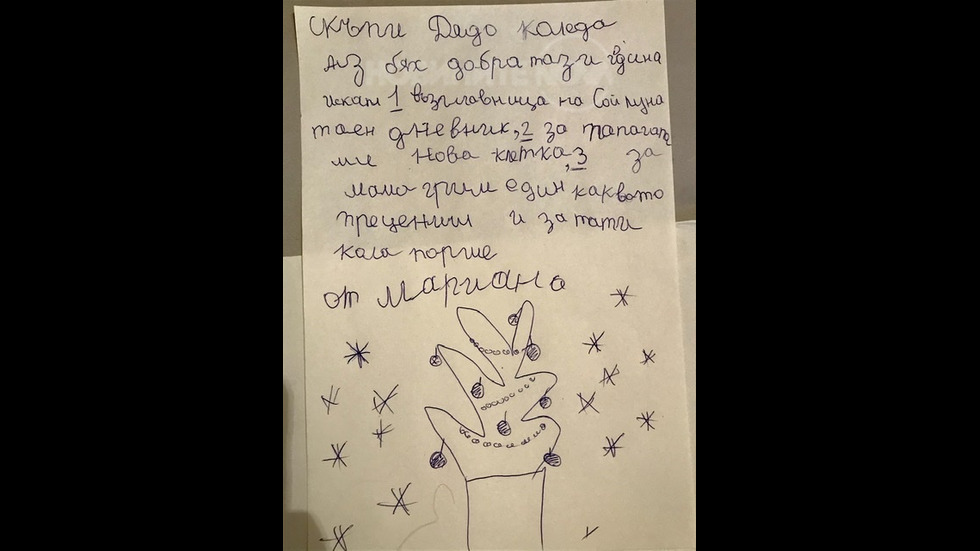 Скъпи Дядо Коледа
Аз бях добра тази година
искам 1 възглавница на Сой Луна
таен дневник, 2 за папагала
ми нова клетка, 3 за
мама грим един каквото
прецениш и за тати
кола порше
от Мариана